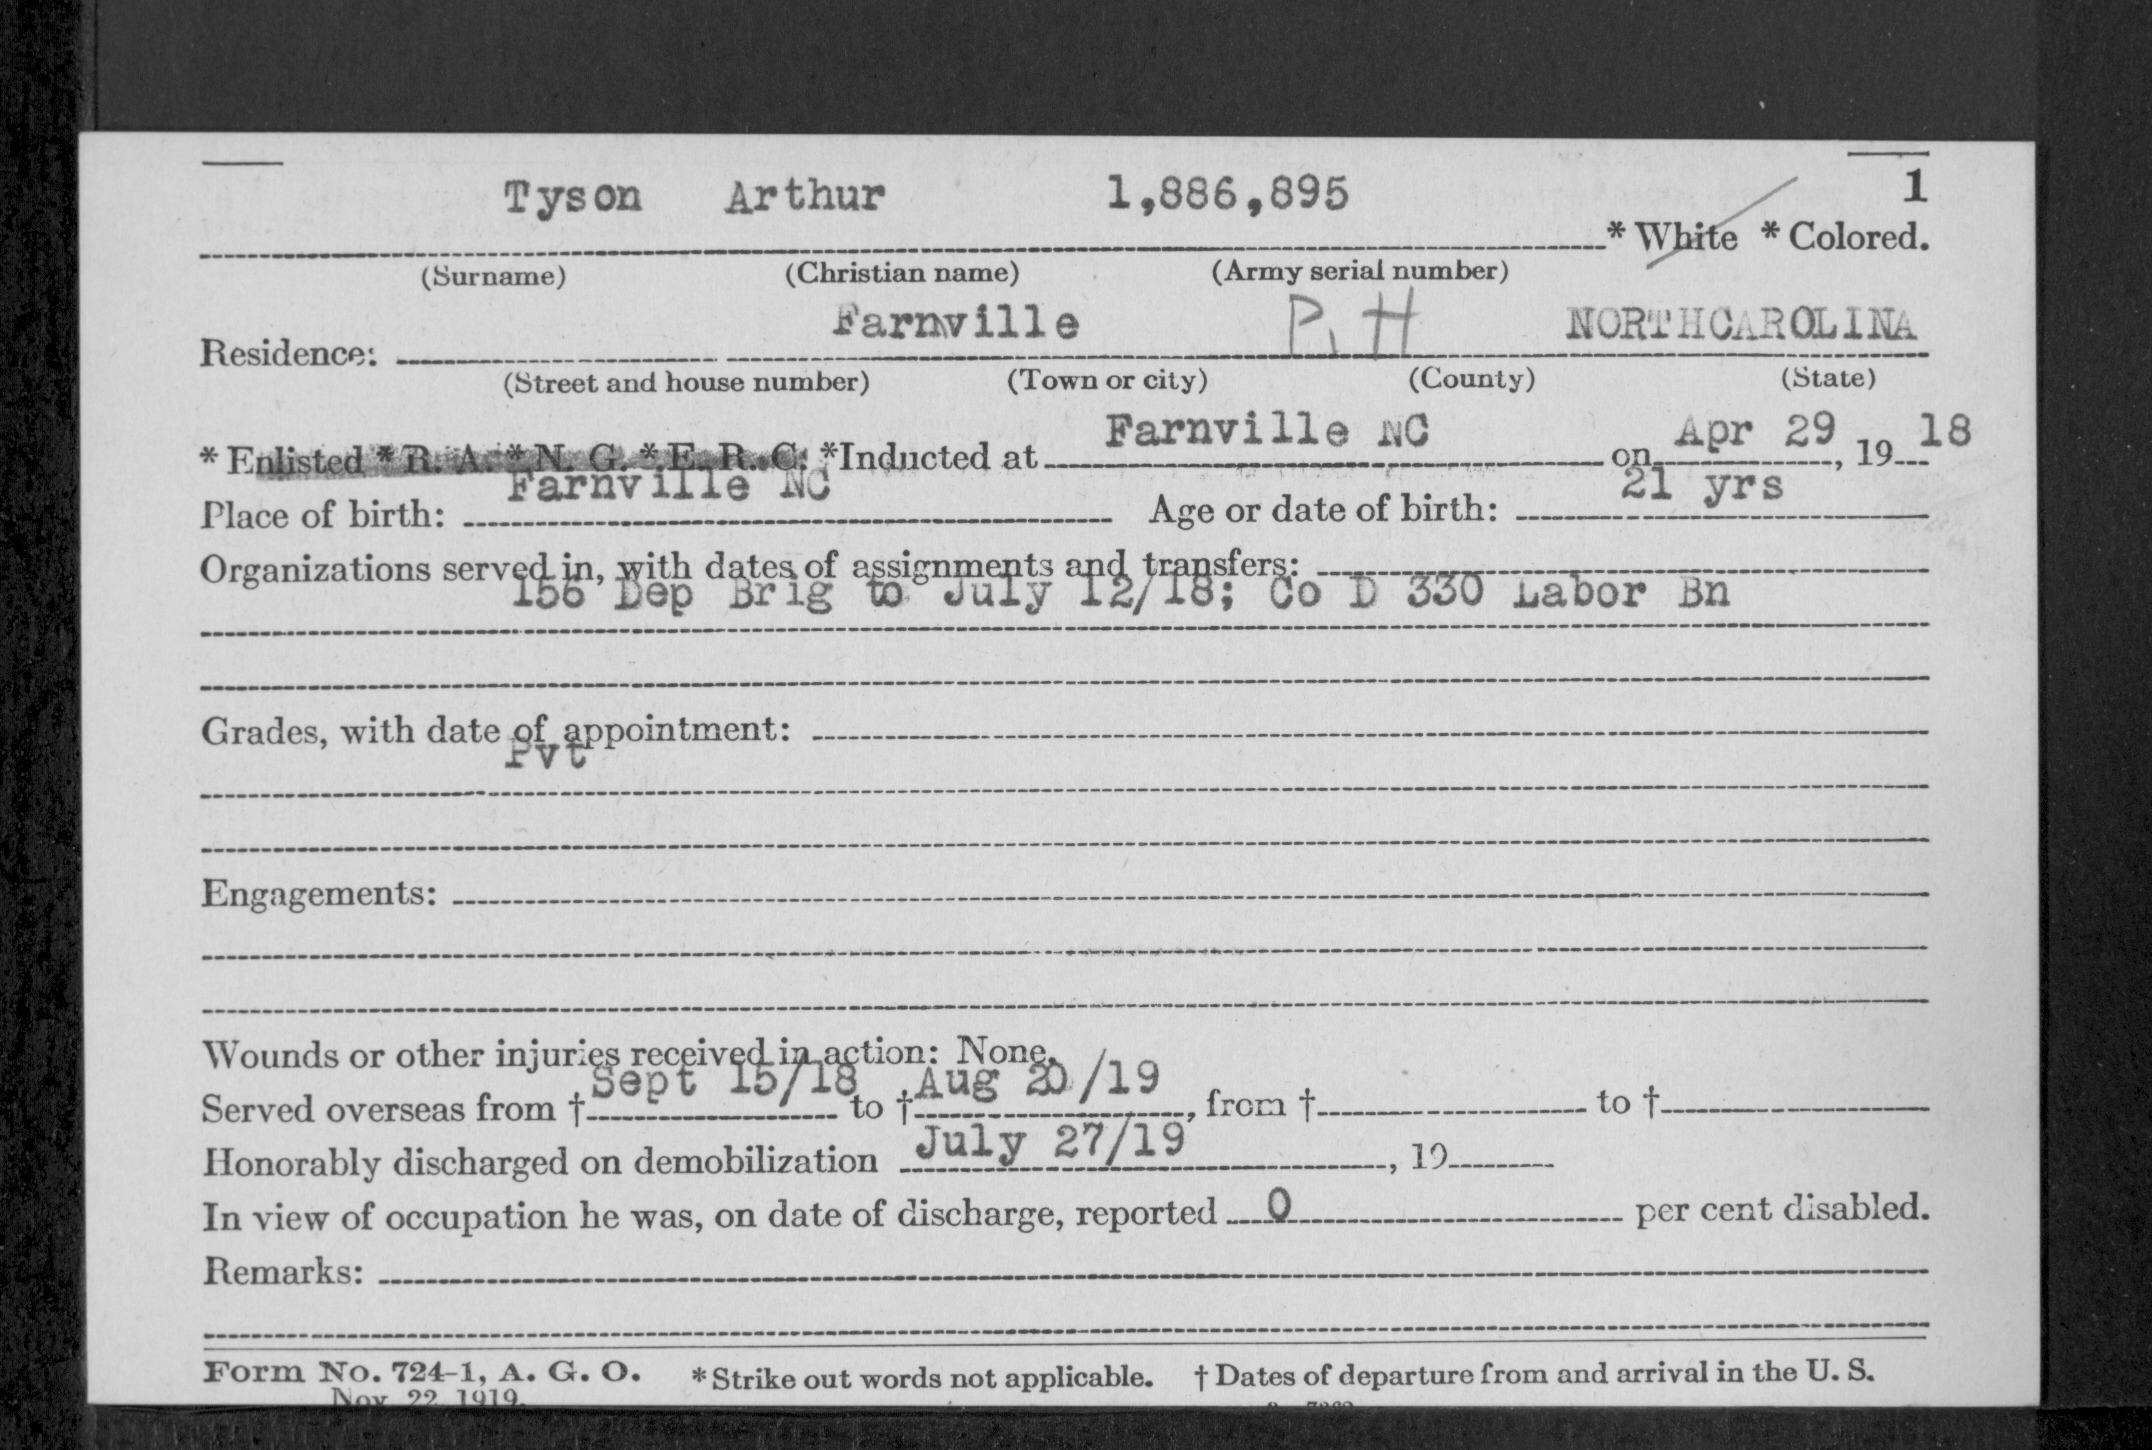 Tyson Arthur 1,886,895 1
* White * Colored.
(Surname) (Christian name) (Army serial number)
Farnville P. H NORTHCAROLINA
Residence:
(Street and house number) (Town or city) (County) (State)
Farnville NC Apr 29 18
* Enlisted * R. A. * N. G. * E. R. C. *Inducted at on , 19
Farnville NC 21 yrs
Place of birth: Age or date of birth:
Organizations served in, with dates of assignments and transfers:
156 Dep Brig to July 12/18; Co D 330 Labor Bn
Grades, with date of appointment:
Pvt
Engagements:
Wounds or other injuries received in action: None.
Sept 15/18 Aug 20/19
Served overseas from † to † , from † to †
July 27/19
Honorably discharged on demobilization , 19
In view of occupation he was, on date of discharge, reported 0 per cent disabled.
Remarks:
Form No. 724-1, A. G. O. * Strike out words not applicable. † Dates of departure from and arrival in the U. S.
Nov. 22, 1919.